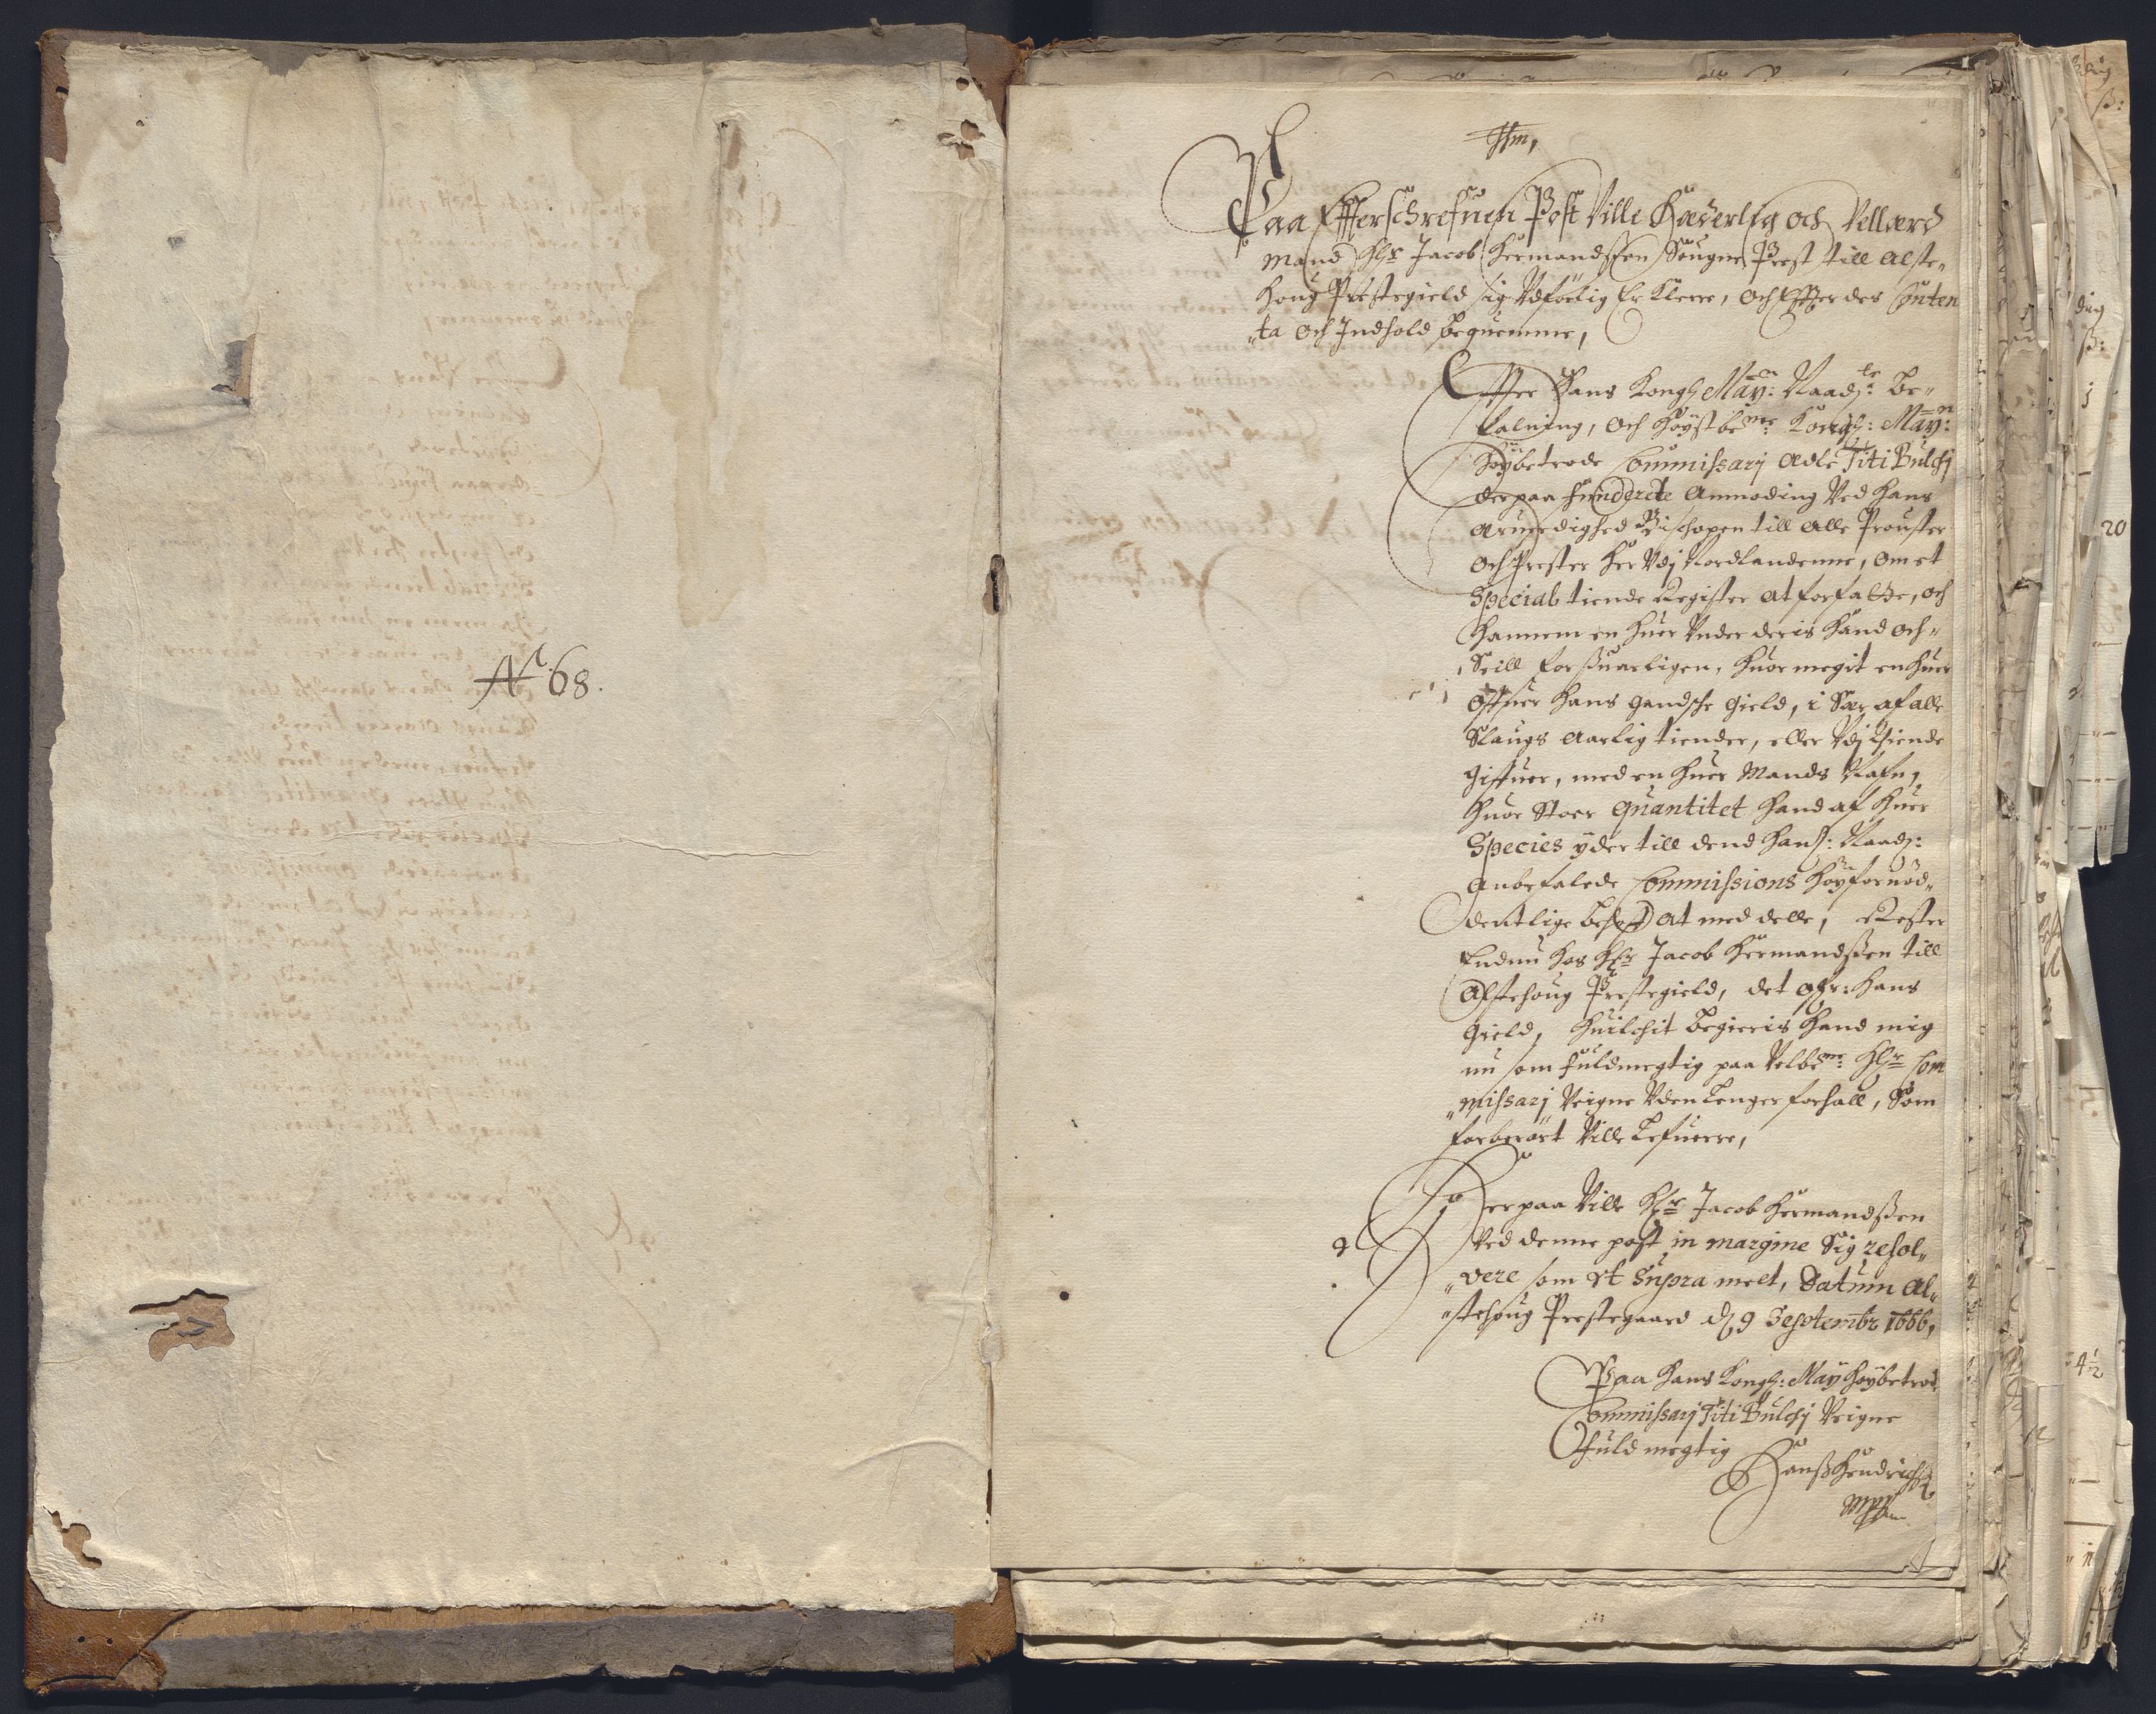 N° 68.
Hm,
Paa Effterschrefuen Post Ville Hæderlig och Vellærd
Mand Hr Jacob Hermandssen Sougne Prest till Alste„
houg Prestegield sig Udførlig Erklerre, och Effter des Conten
„ta och Indhold bequemme,
Effter Hans Kongl May: Naadste Be„
falning, och høystbete Kongl: May:
Høybetrode Commissarj Ædle Titi Bulchj
derpaa funderete Anmoding Ved hans
Ærverdighed Bischopen till Alle Prouster
och Prester her Udj Nordlandenne, om et
Special tiende Register at forfatte, och
hannem en huer Under deris hand och„
Seill forsuarligen, huor megit en huer
offuer hans gandsche gield, i Sær af alle
Slaugs Aarlig tiender, eller Udj tiende
giffuer, med en huer Mands Nafn,
huor Stoer quantitet hand af huer
Species yder till dend hans: Naads:
Anbefalede Commissions høyfornød„
dentlige behoff at meddelle, Rester
Endnu hos Hr Jacob Hermandssen till
Alstehoug Prestegield, det ofr: hans
gield, huilchit begieris hand mig
nu som fuldmegtig paa Velbete Hr Com
„missarj Veigne Uden lenger forhall, Som
forberørt Ville lefuerre,
Herpaa Ville Hr Jacob Hermandssen
Ved denne post in margine Sig resol„
„vere som Ut Supra melt, Datum Al„
„stehoug Prestegaard d. 9 Septembr 1666,
Paa Hans Kongl: May Høybetrod
Commissarj Titi Bulchj Veigne
fuldmegtig
Hanss Hendrichs
mpp